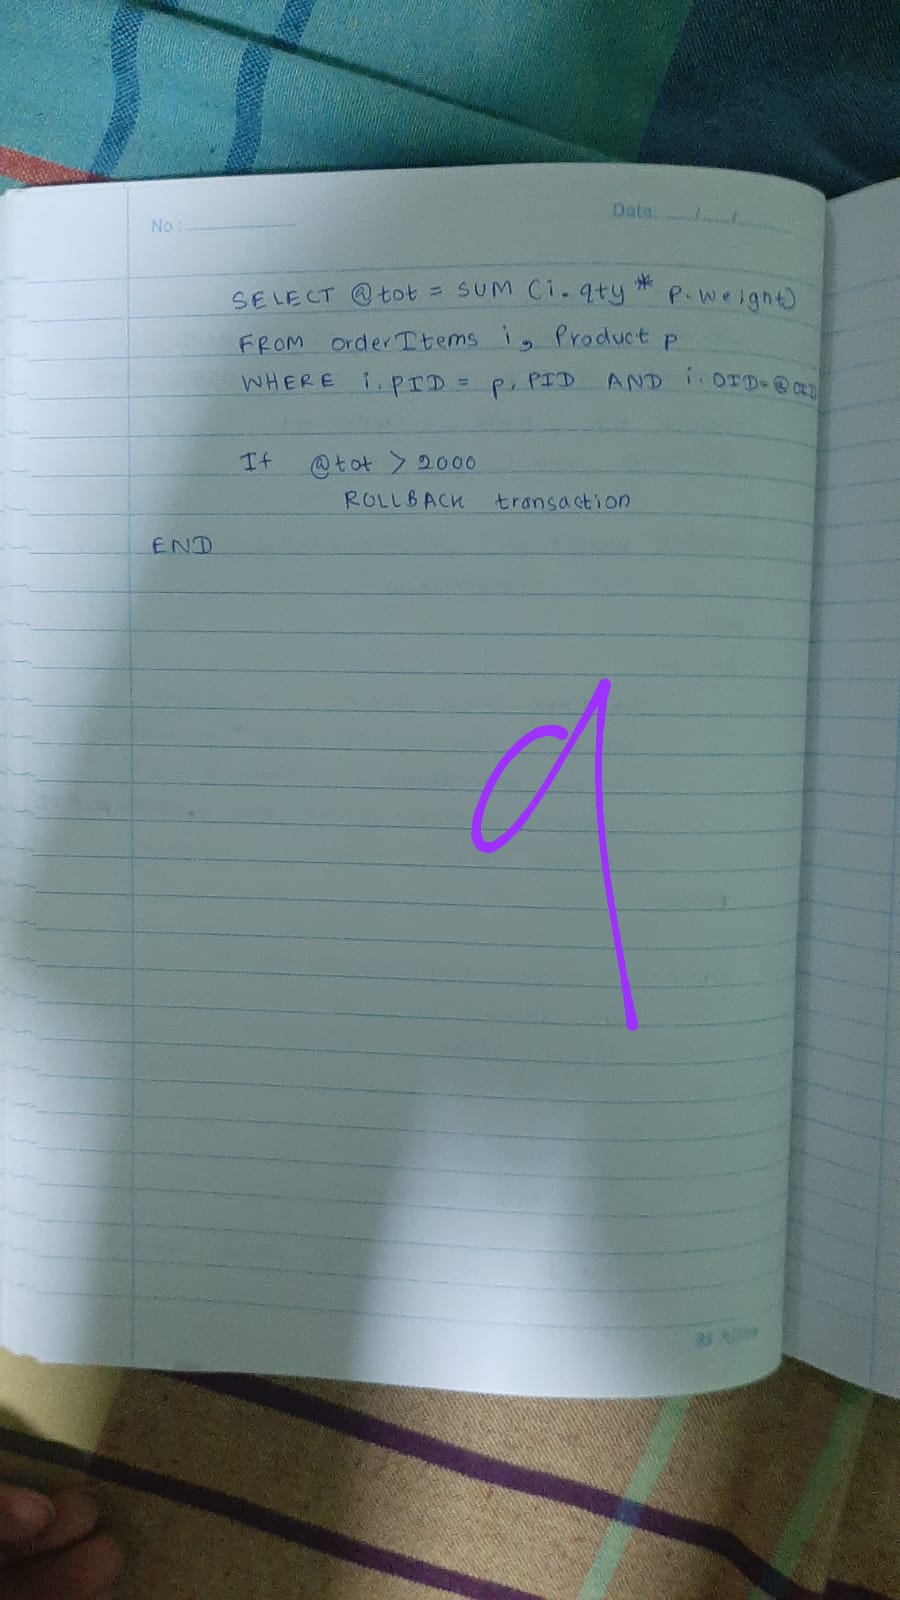 No :
Date: / /
SELECT @tot = SUM (i.qty * p.weight)
FROM orderItems i, Product p
WHERE i.PID = p.PID AND i.OID=@OID
If @tot > 2000
ROLLBACK transaction
END
9